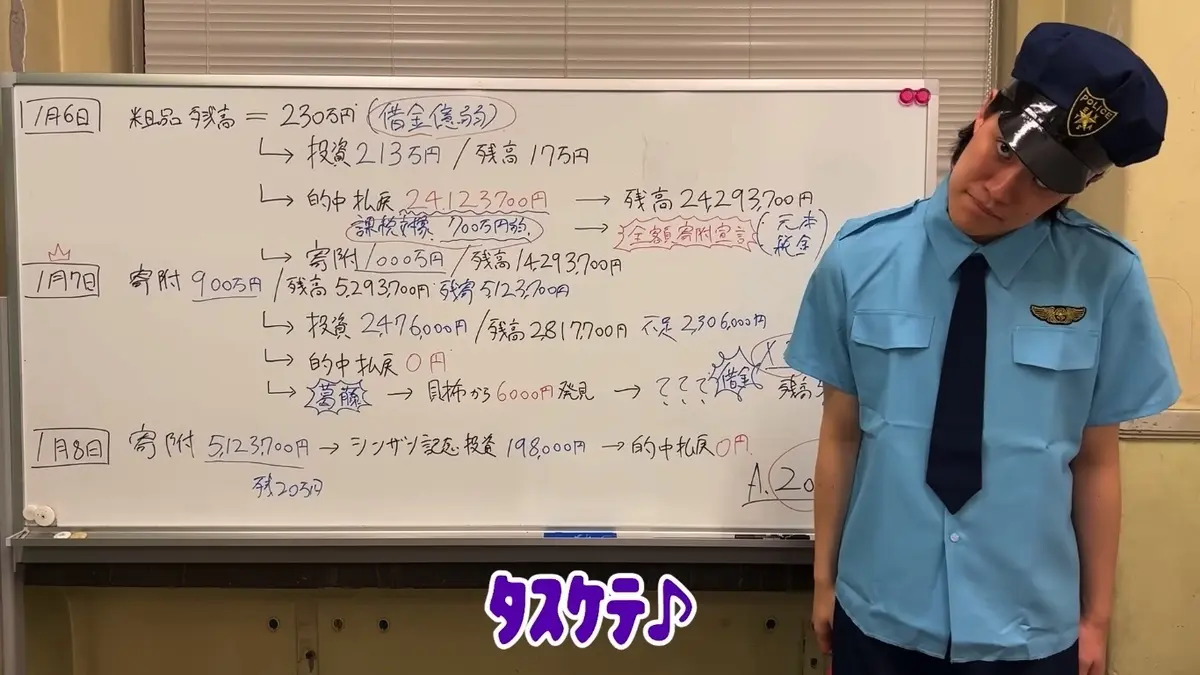 1月6日 粗品残高=230万円(借金億弱)
→ 投資213万円/残高17万円
→ 的中払戻 24,123,700円 → 残高24,293,700円
課税対象 700万円弱 → 全額寄附宣言(元本 税金)
→ 寄附1000万円/残高14,293,700円
1月7日 寄附900万円/残高5,293,700円 残寄5,123,700円
→ 投資2,476,000円/残高2,817,700円 不足2,306,000円
→ 的中払戻0円
→ 葛藤 → 財布から6000円発見 → ??? 借金
残高
1月8日 寄附5,123,700円→シンザン記念投資198,000円→的中払戻0円
残20万円
A.20
POLICE
タスケテ♪